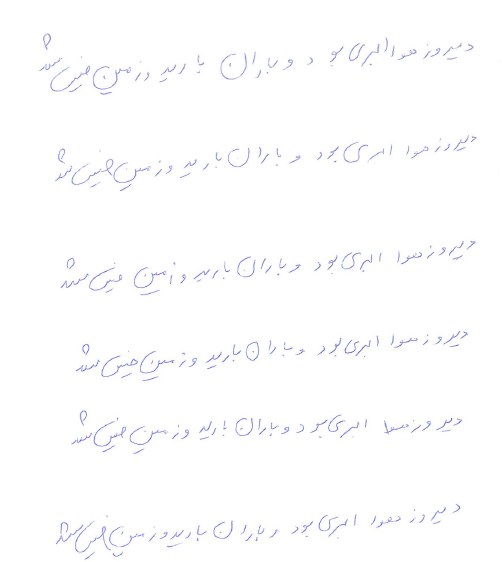 دیروز هوا ابری بود و باران بارید و زمین خیس شد
دیروز هوا ابری بود و باران بارید و زمین خیس شد
دیروز هوا ابری بود و باران بارید و زمین خیس شد
دیروز هوا ابری بود و باران بارید و زمین خیس شد
دیروز هوا ابری بود و باران بارید و زمین خیس شد
دیروز هوا ابری بود و باران بارید و زمین خیس شد